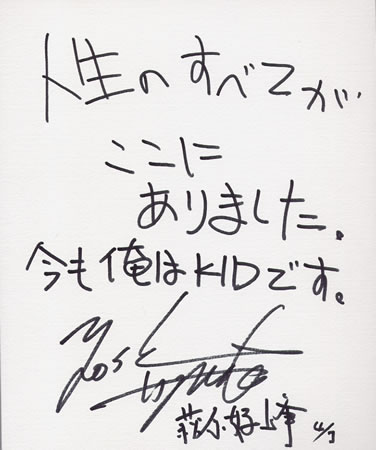 人生のすべてが
ここに
ありました。
今も俺はKIDです。